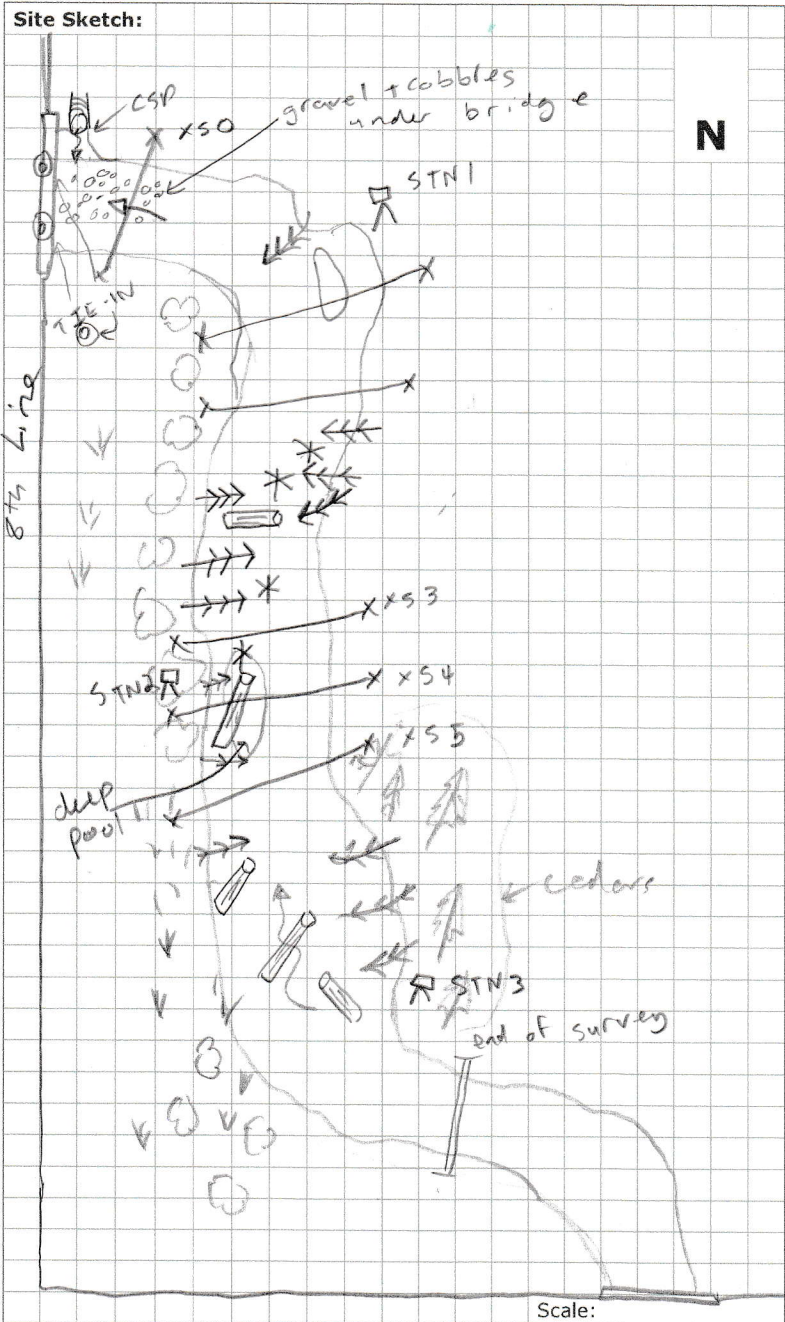 Site Sketch:
CSP
XS0
gravel + cobbles
under bridge
N
STN1
TIE-IN
8th Line
XS3
STN2
XS4
XS5
deep
pool
cedars
STN3
end of survey
Scale: